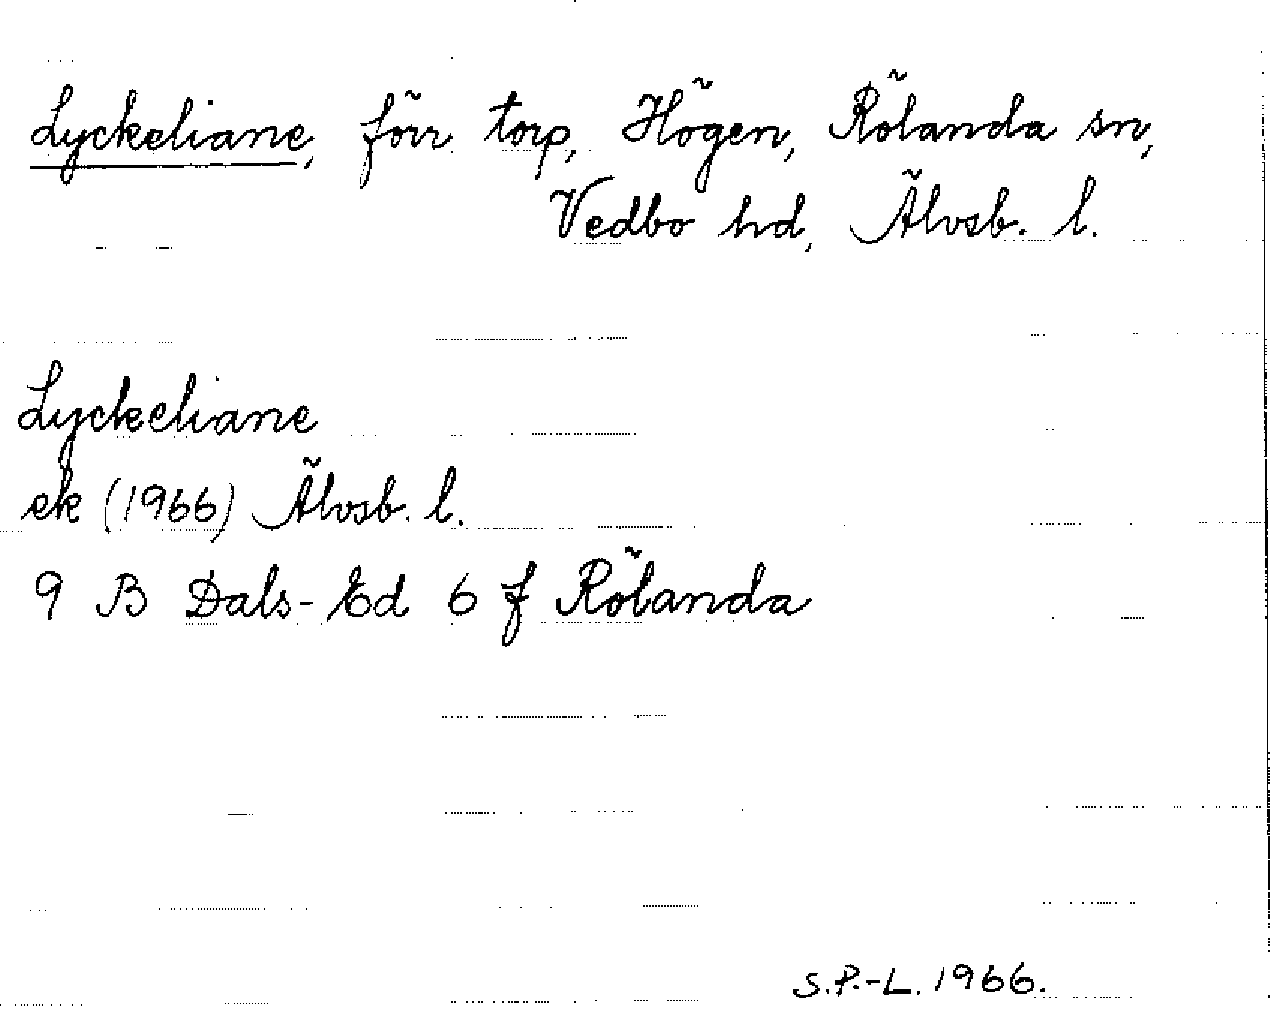 Lyckeliane, förr torp, Högen, Rölanda sn,
Vedbo hd, Älvsb. l.
Lyckeliane
ek (1966) Älvsb. l.
9 B Dals-Ed 6 f Rölanda
S.P.-L. 1966.